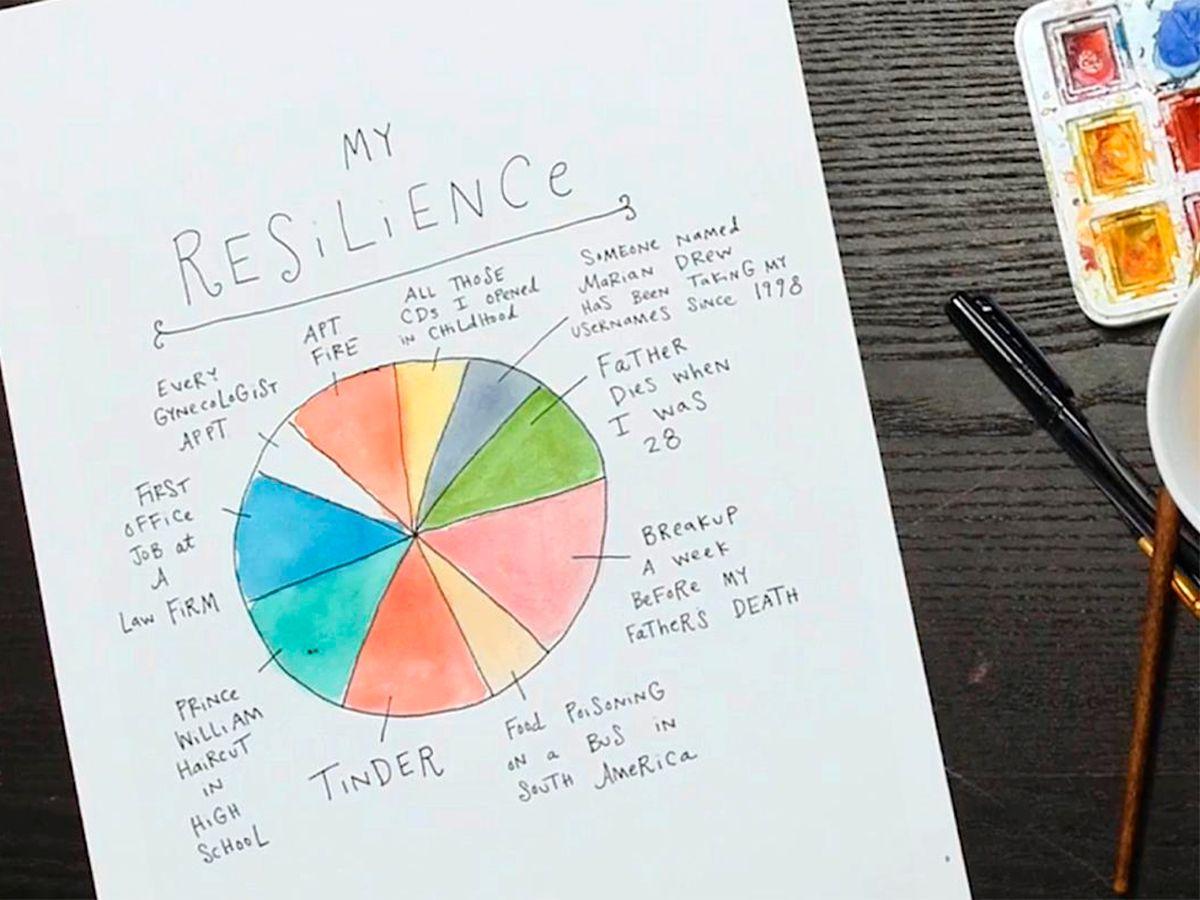 MY
RESiLiENCe
ALL THOSE
CDs I OPENED
iN CHiLdHooD
SOMEONE NAMED
MaRiaN DREW
HaS BEEN TaKiNG MY
USeRNAMES SiNCe 1998
APT
FiRE
EVeRY
GYNeCoLoGiST
APPT
FaTHeR
Dies wHeN
I waS
28
FiRST
oFFiCe
JoB at
A
Law FiRM
BReakUP
A week
BeFoRe MY
FaTheR'S DEATH
PRiNCe
WiLLiAM
HaiRCuT
iN
HiGH
ScHooL
TiNDER
Food PoiSoNiNG
oN a BuS iN
SouTH AMeRica